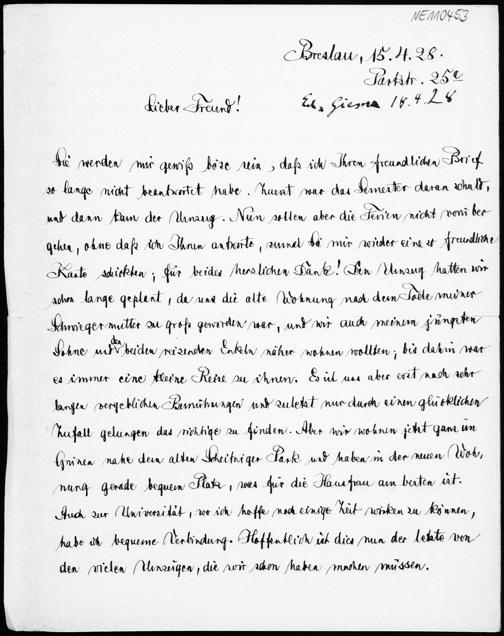 NE110453
Breslau, 15.4.28.
Parkstr. 25a
Lieber Freund!
18.4.28
Sie werden mir gewiß böse sein, daß ich Ihren freundlichen Brief
so lange nicht beantwortet habe. Zuerst war das Semester daran schuld,
und dann kam der Umzug. Nun sollen aber die Ferien nicht vorüber
gehen, ohne daß ich Ihnen antworte, zumal Sie mir wieder eine so freundliche
Karte schickten; für beides herzlichen Dank! Den Umzug hatten wir
schon lange geplant, da uns die alte Wohnung nach dem Tode meiner
Schwiegermutter zu groß geworden war, und wir auch meinem jüngsten
Sohne und den beiden reizenden Enkeln näher wohnen wollten; bis dahin war
es immer eine kleine Reise zu ihnen. Es ist uns aber erst nach sehr
langen vergeblichen Bemühungen und zuletzt nur durch einen glücklichen
Zufall gelungen das richtige zu finden. Aber wir wohnen jetzt ganz im
Grünen nahe dem alten Scheitniger Park und haben in der neuen Woh-
nung gerade bequem Platz, was für die Hausfrau am besten ist.
Auch zur Universität, wo ich hoffe noch einige Zeit wirken zu können,
habe ich bequeme Verbindung. Hoffentlich ist dies nun der letzte von
den vielen Umzügen, die wir schon haben machen müssen.